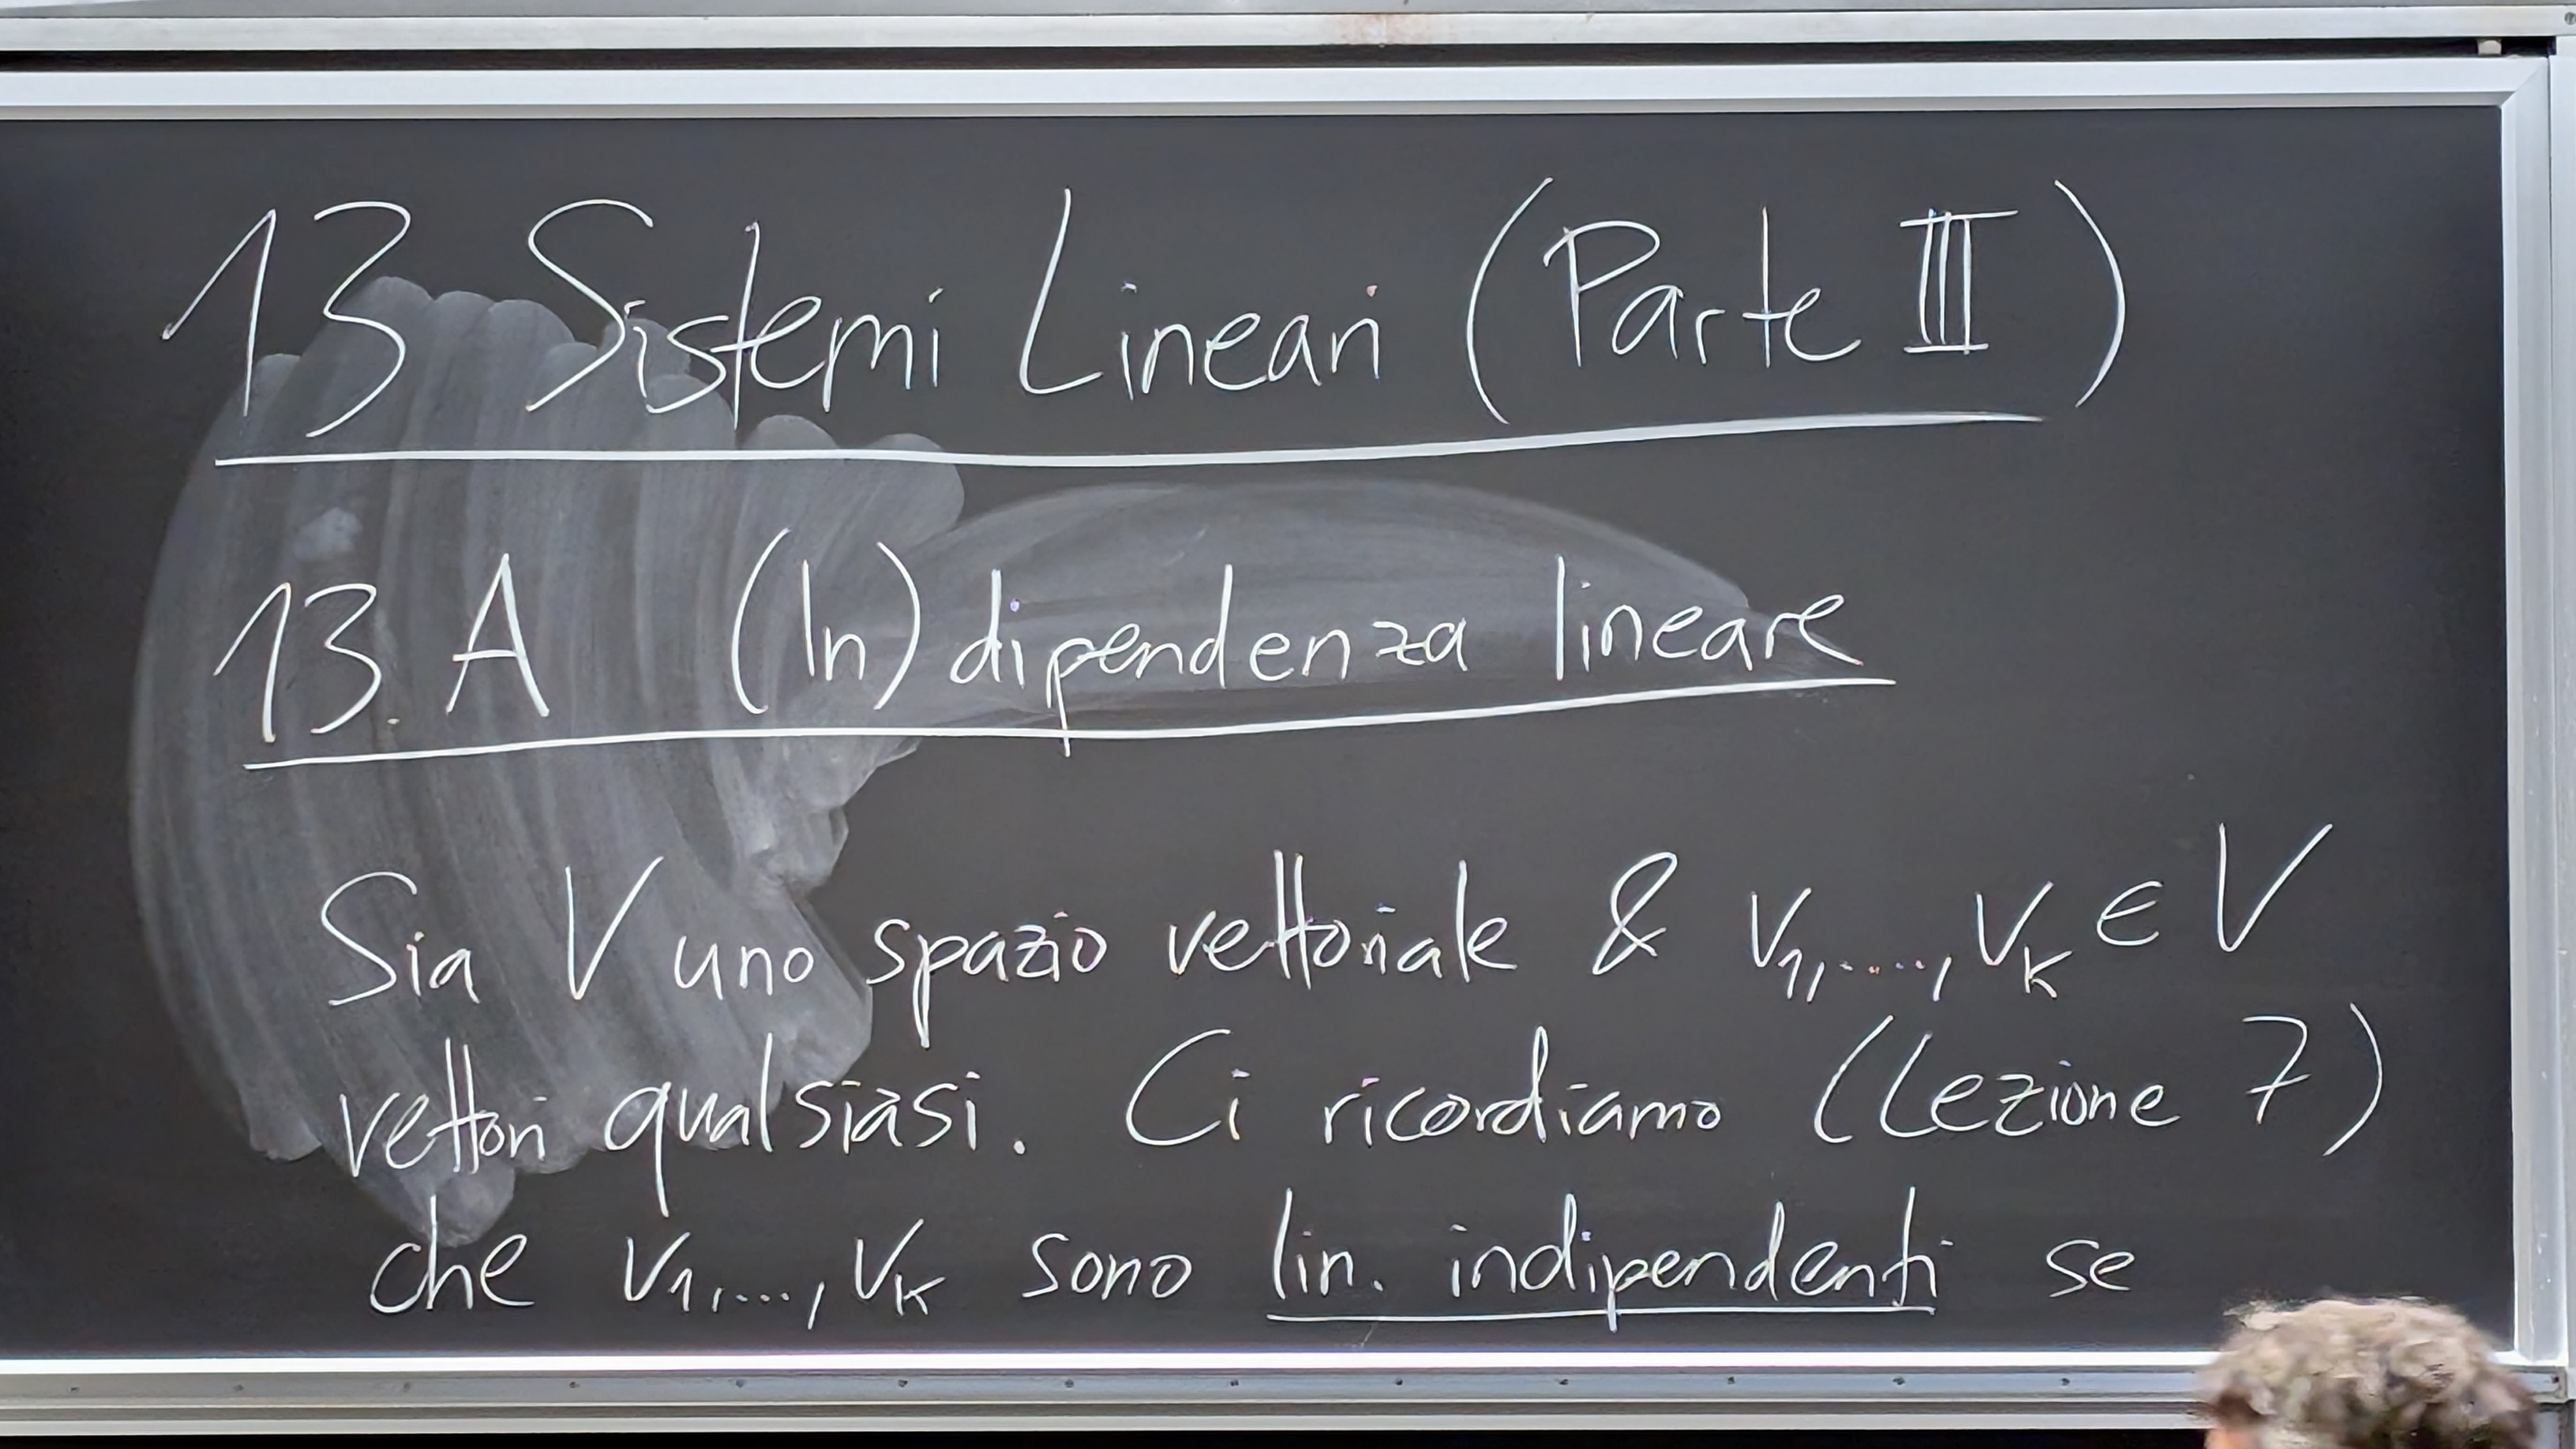 13 Sistemi Lineari (Parte III)
13. A (In)dipendenza lineare
Sia V uno spazio vettoriale & v₁,....,vₖ ∈ V
vettori qualsiasi. Ci ricordiamo (Lezione 7)
che v₁,...,vₖ sono lin. indipendenti se